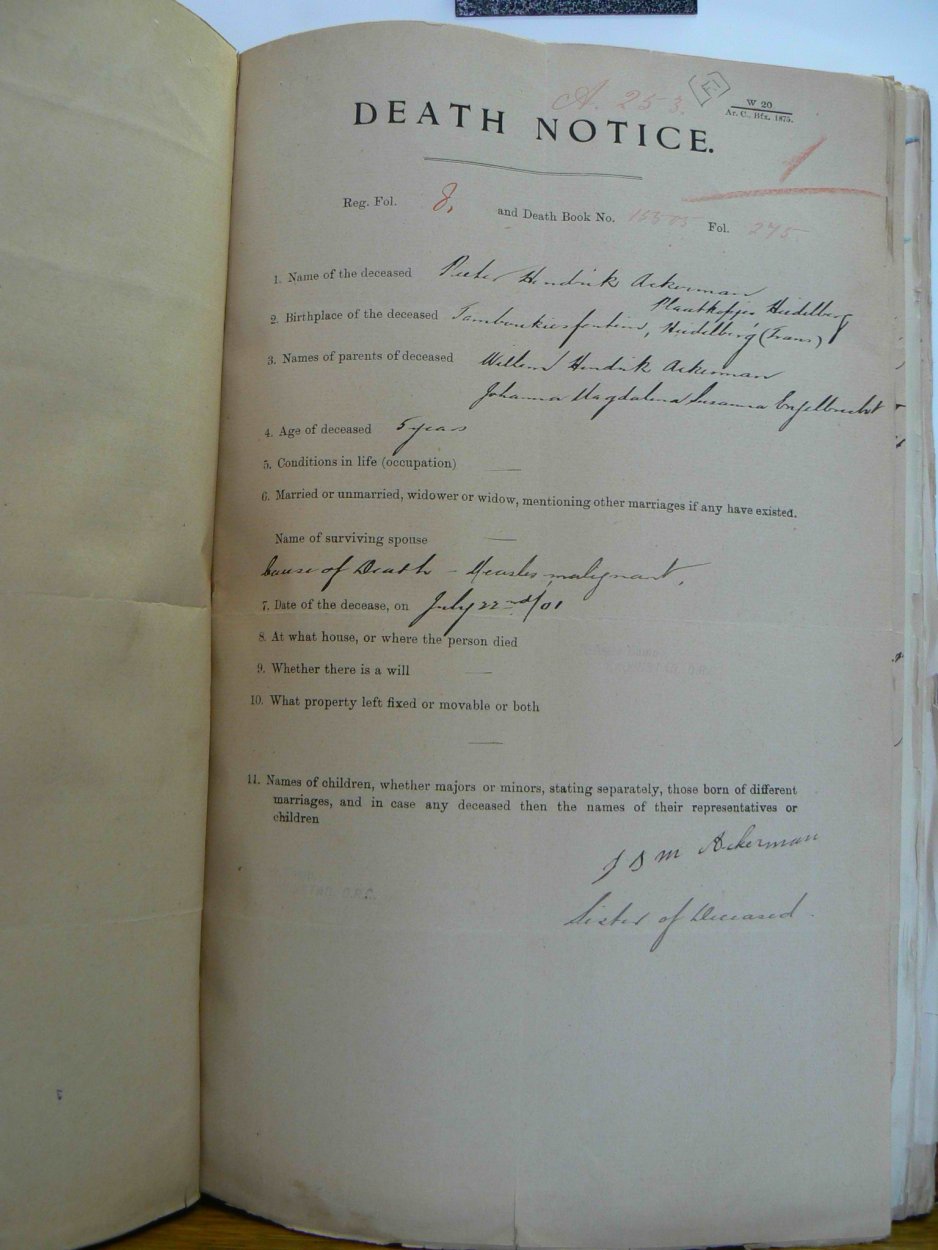 A. 253.
(F.1)
W 20
Ar. C., Bfx. 1875.
DEATH NOTICE.
1
Reg. Fol. J. and Death Book No. Fol. 275
1. Name of the deceased Pieter Hendrik Ackerman
Plaatkopjes Heidelberg
2. Birthplace of the deceased Tamboukiesfontein, Heidelberg (Trans)
3. Names of parents of deceased Willem Hendrik Ackerman
Johanna Magdalena Susanna Engelbrecht
4. Age of deceased 5 years
5. Conditions in life (occupation) —
6. Married or unmarried, widower or widow, mentioning other marriages if any have existed.
Name of surviving spouse —
Cause of Death - Measles malignant.
7. Date of the decease, on July 22nd/01
8. At what house, or where the person died
9. Whether there is a will —
10. What property left fixed or movable or both
—
11. Names of children, whether majors or minors, stating separately, those born of different
marriages, and in case any deceased then the names of their representatives or
children
J S M Ackerman
Sister of Deceased.